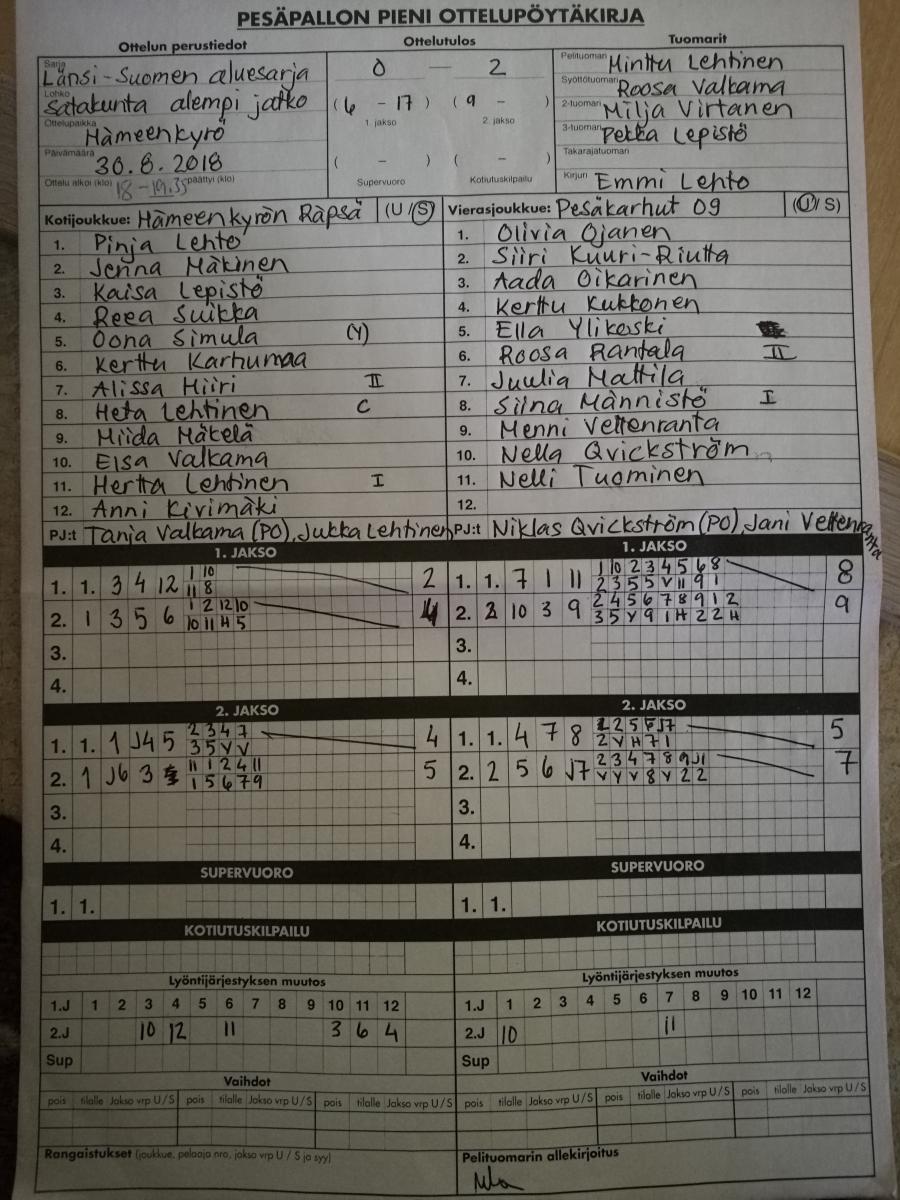 PESÄPALLON PIENI OTTELUPÖYTÄKIRJA
Ottelun perustiedot Ottelutulos Tuomarit
Sarja Länsi-Suomen aluesarja
Lohko Satakunta alempi jatko
Ottelupaikka Hämeenkyrö
Päivämäärä 30.8.2018
Ottelu alkoi (klo) 18-19.35 päättyi (klo)
0 — 2
(6 - 17) (9 - )
1. jakso 2. jakso
( - ) ( - )
Supervuoro Kotiutuskilpailu
Pelituomari Minttu Lehtinen
Syöttötuomari Roosa Valkama
2-tuomari Milja Virtanen
3-tuomari Pekka Lepistö
Takarajatuomari
Kirjuri Emmi Lehto
Kotijoukkue: Hämeenkyrön Räpsä (U / S)
1. Pinja Lehto
2. Jenna Mäkinen
3. Kaisa Lepistö
4. Reea Suikka
5. Oona Simula (Y)
6. Kerttu Karhumaa
7. Alissa Hiiri II
8. Heta Lehtinen C
9. Miida Mäkelä
10. Elsa Valkama
11. Hertta Lehtinen I
12. Anni Kivimäki
PJ:t Tanja Valkama (PO), Jukka Lehtinen
Vierasjoukkue: Pesäkarhut 09 (U / S)
1. Olivia Ojanen
2. Siiri Kuuri-Riutta
3. Aada Oikarinen
4. Kerttu Kukkonen
5. Ella Ylikoski
6. Roosa Rantala II
7. Juulia Mattila
8. Siina Männistö I
9. Menni Vettenranta
10. Nella Qvickström
11. Nelli Tuominen
12.
PJ:t Niklas Qvickström (PO), Jani Vettenranta
1. JAKSO
1. 1. 3 4 12 1 10 2
11 8
2. 1 3 5 6 1 2 12 10 4
10 11 H 5
3.
4.
1. JAKSO
1. 1. 7 1 11 1 10 2 3 4 5 6 8 8
2 3 5 5 V 11 9 1
2. 2 10 3 9 2 4 5 6 7 8 9 1 2 9
3 5 V 9 1 H 2 2 H
3.
4.
2. JAKSO
1. 1. 1 J4 5 2 3 4 7 4
3 5 V V
2. 1 J6 3 11 1 2 4 11 5
1 5 6 7 9
3.
4.
2. JAKSO
1. 1. 4 7 8 1 2 5 6 J7 5
2 V H 7 1
2. 2 5 6 J7 2 3 4 7 8 9 J1 7
V V V 8 V 2 2
3.
4.
SUPERVUORO
1. 1.
SUPERVUORO
1. 1.
KOTIUTUSKILPAILU
KOTIUTUSKILPAILU
Lyöntijärjestyksen muutos
1.J 1 2 3 4 5 6 7 8 9 10 11 12
2.J 10 12 11 3 6 4
Sup
Lyöntijärjestyksen muutos
1.J 1 2 3 4 5 6 7 8 9 10 11 12
2.J 10 11
Sup
Vaihdot
pois tilalle Jakso vrp U / S pois tilalle Jakso vrp U / S pois tilalle Jakso vrp U / S
Vaihdot
pois tilalle Jakso vrp U / S pois tilalle Jakso vrp U / S pois tilalle Jakso vrp U / S
Rangaistukset (joukkue, pelaaja nro, jakso vrp U / S ja syy)
Pelituomarin allekirjoitus